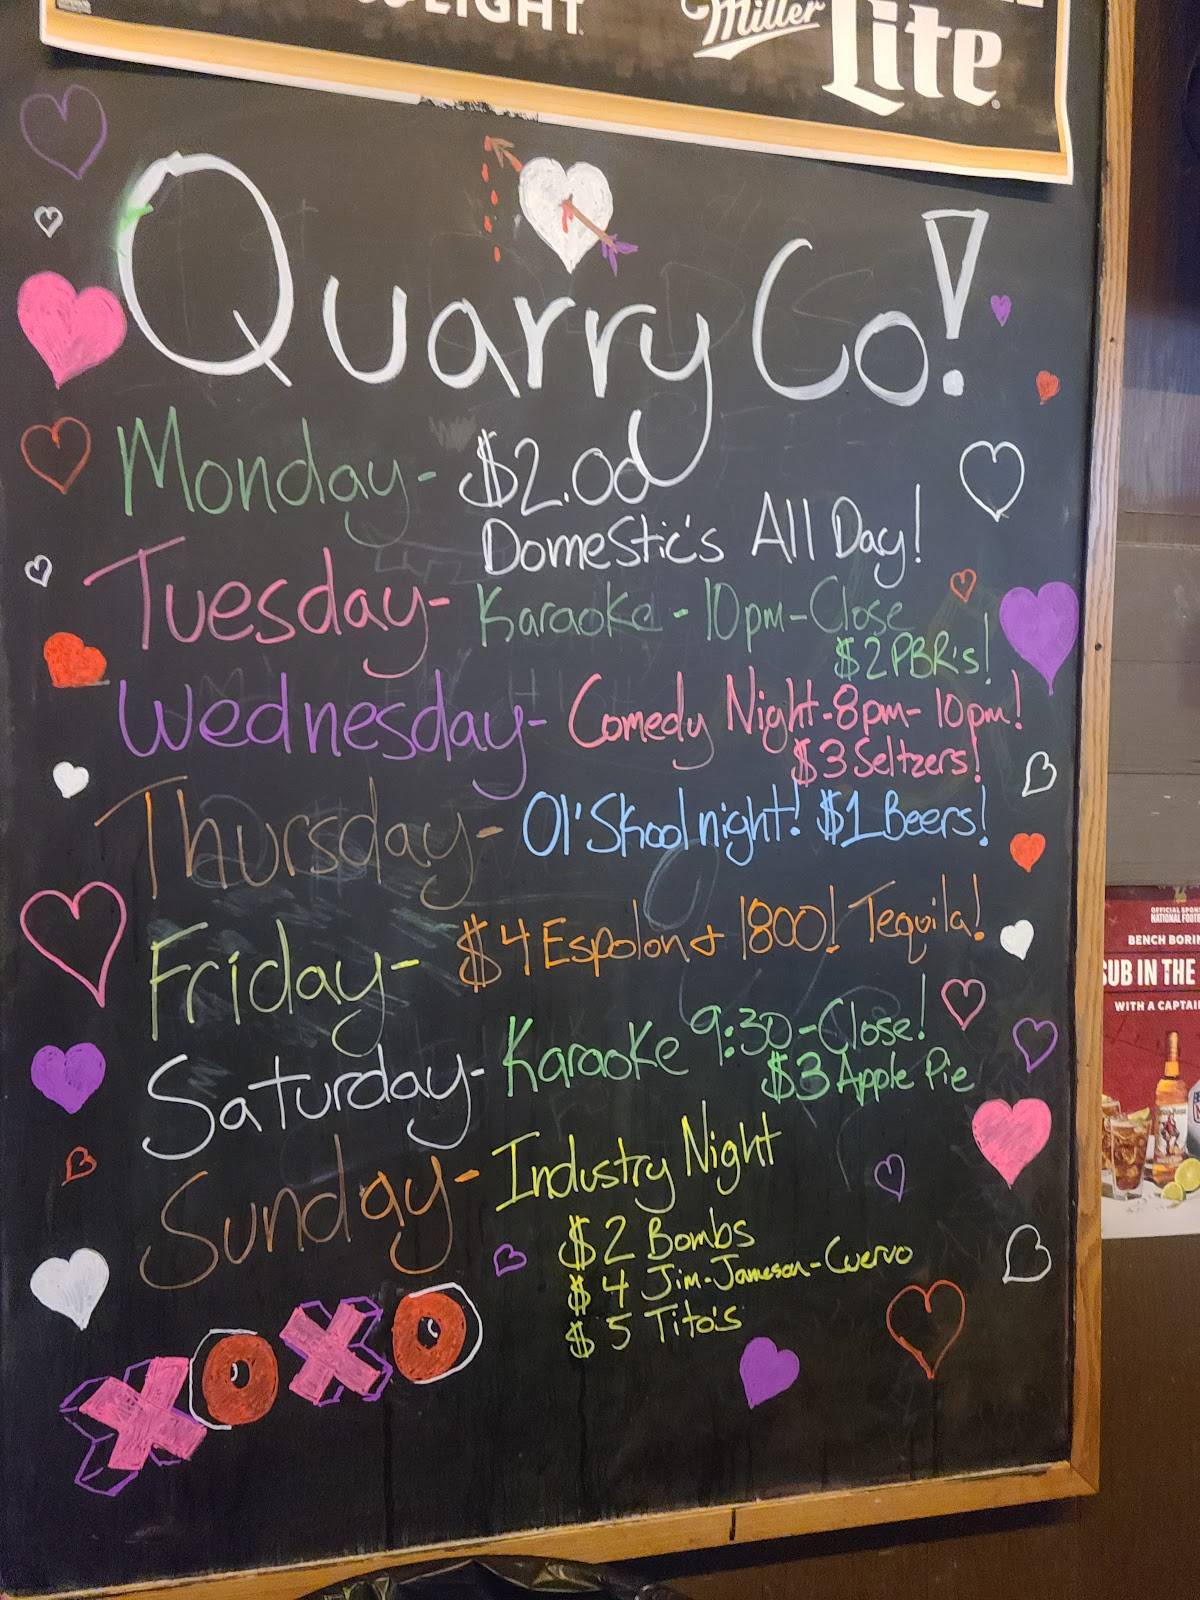 LIGHT
Miller Lite
Quarry Co!
Monday- $2.00
Domestic's All Day!
Tuesday- Karaoke - 10pm-Close
$2 PBR's!
Wednesday- Comedy Night-8pm-10pm!
$3 Seltzers!
Thursday- Ol' Skool night! $1 Beers!
Friday- $4 Espolon & 1800! Tequila!
Saturday- Karaoke 9:30-Close!
$3 Apple Pie
Sunday- Industry Night
$2 Bombs
$4 Jim-Jameson-Cuervo
$5 Tito's
XOXO
OFFICIAL SPON
NATIONAL FOOTB
BENCH BORIN
SUB IN THE
WITH A CAPTAI